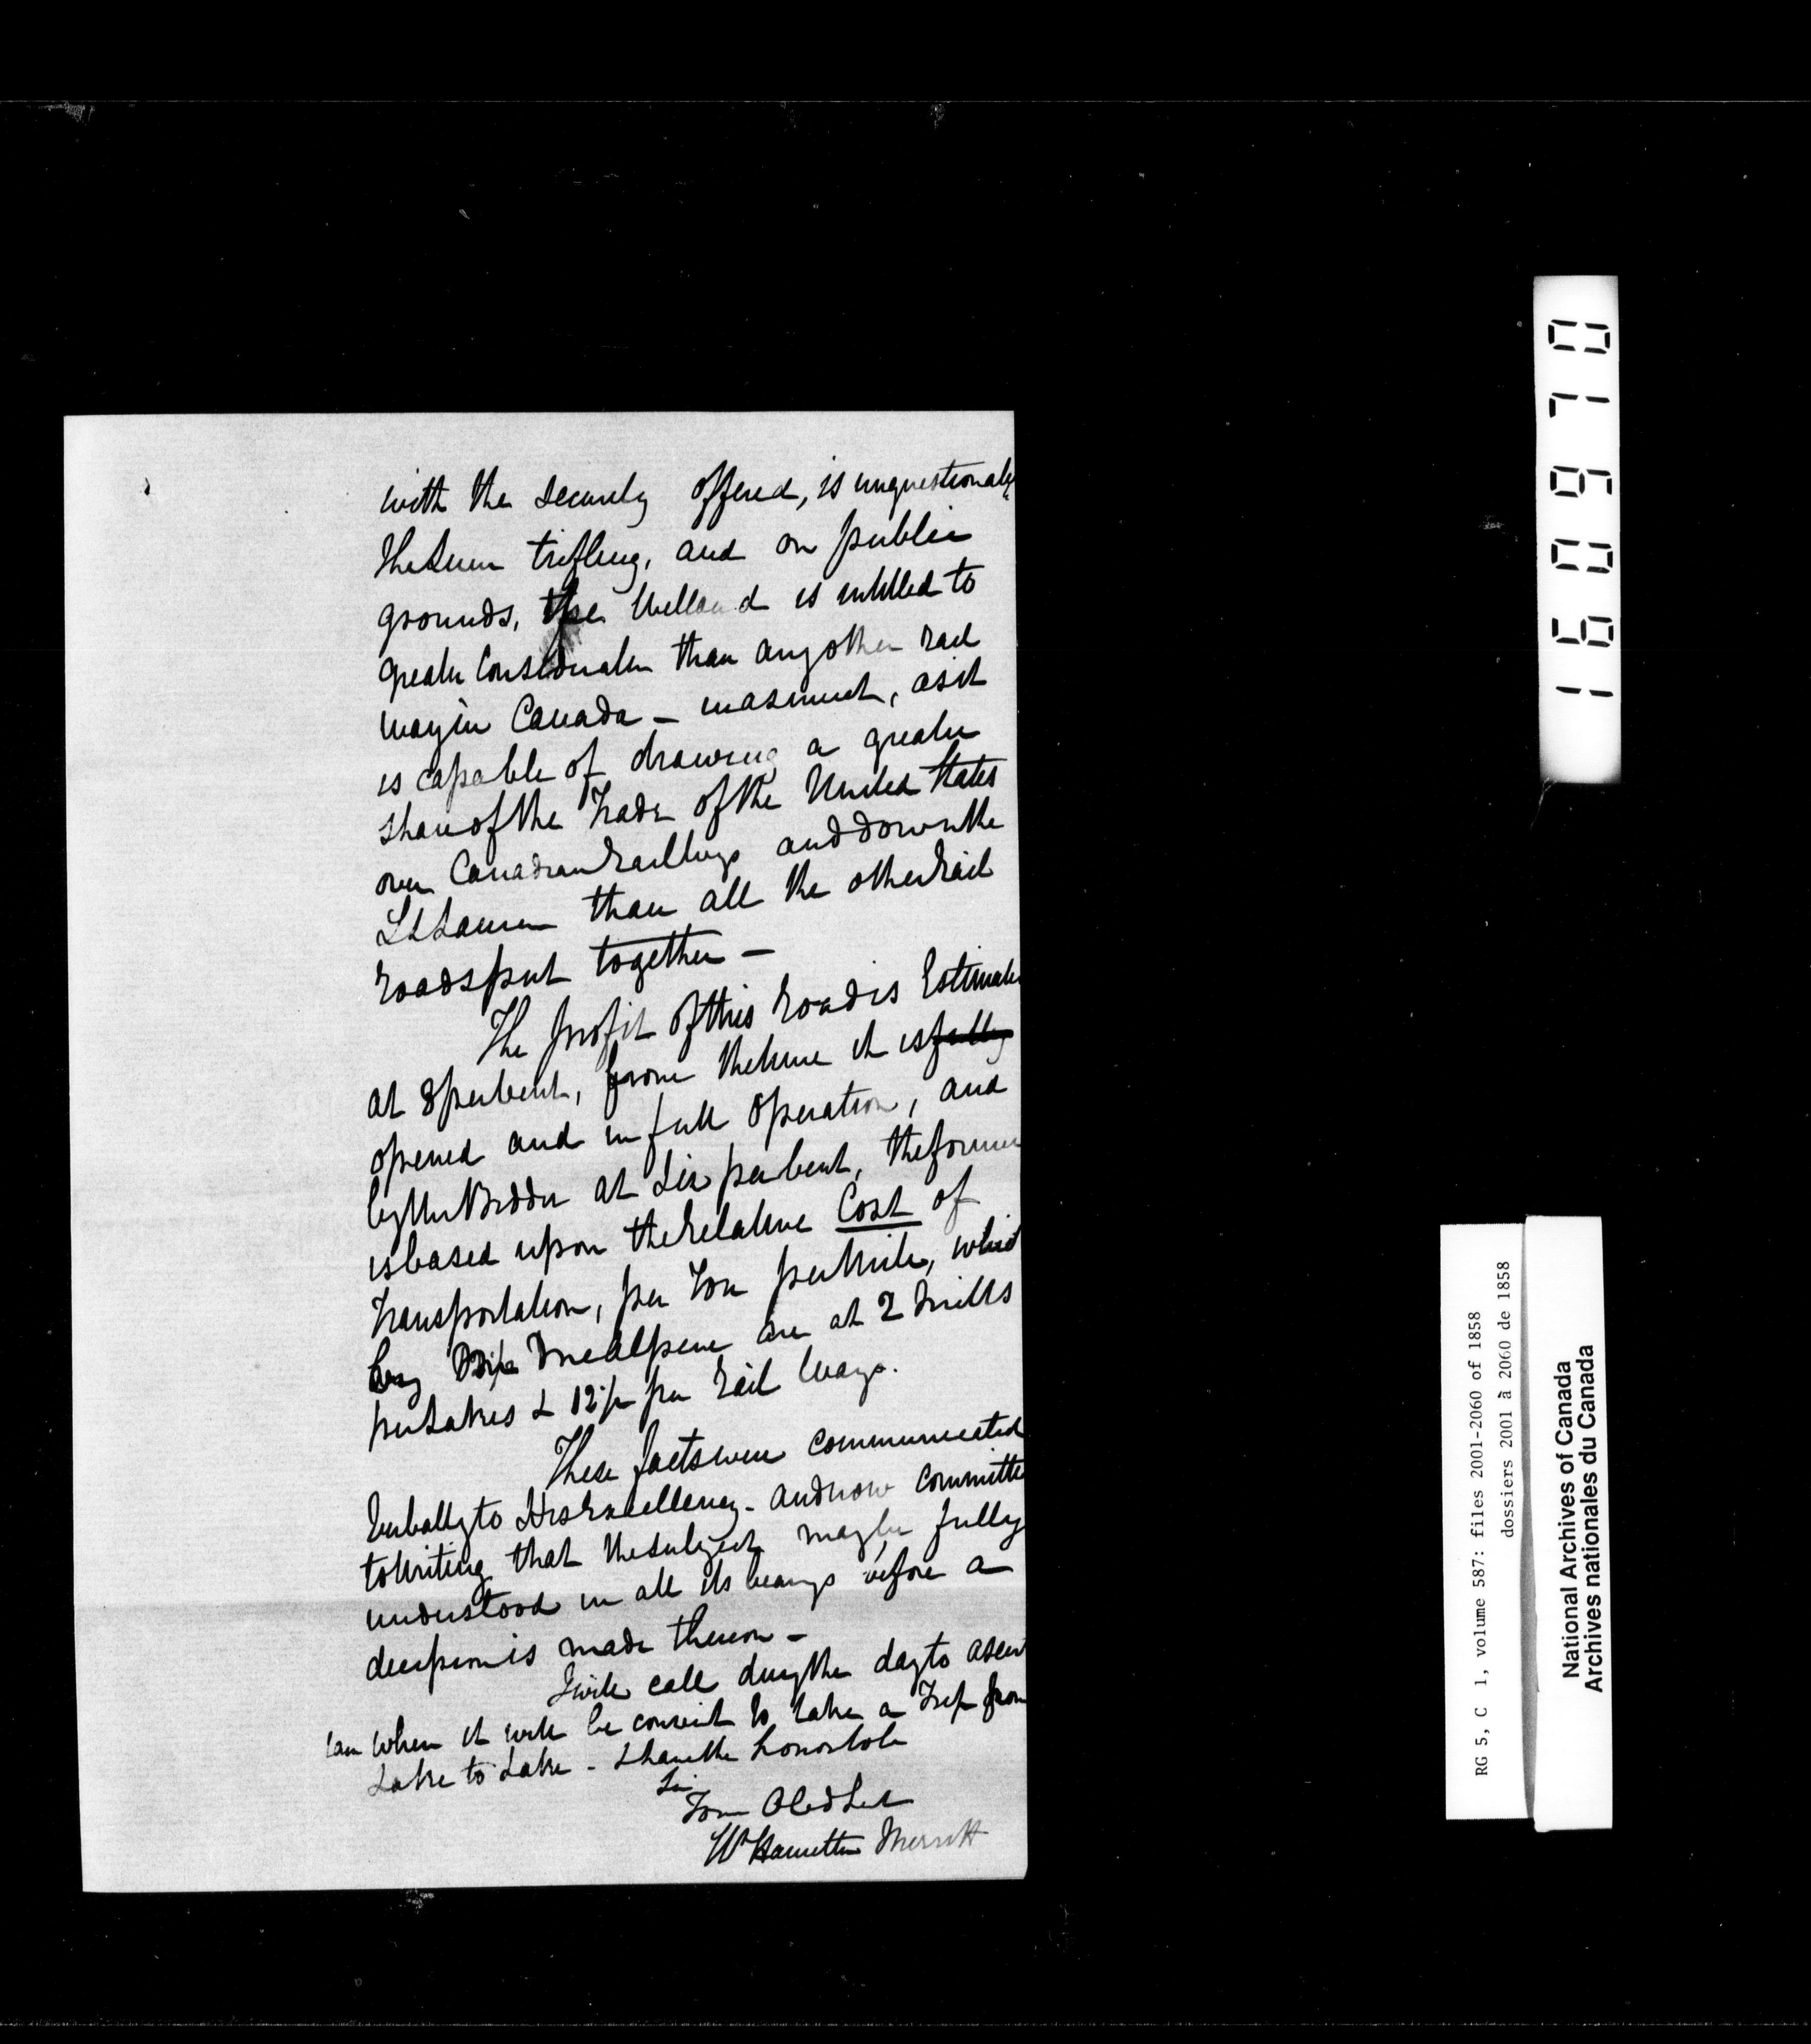 with the security offered, is unquestionably
the sum trifling, and on public
grounds, the Welland is intitled to
greater consideration than any other rail
way in Canada — inasmuch, as it
is capable of drawing a greater
share of the Trade of the United States
over Canadian railways and down the
St Lawrence than all the other rail
roads put together —
The profit of this road is Estimated
at 8 per cent, from the time it is fully
opened and in full operation, and
by Mr Bidder at Six per cent, the former
is based upon the relative Cost of
Transportation, per Ton per Mile, which
by McAlpine are at 2 mills
per Lakes & 12½ per Rail Ways.
These facts were communicated
Verbally to His Excellency - and now committed
to Writing that the subject may be fully
understood in all its bearings before a
decision is made thereon —
I will call during the day to ascer
tain when it will be convenient to take a Trip from
Lake to Lake - I have the honor to be
Sir
Your Obed Sert
Wm Hamilton Merritt
160970
RG 5, C 1, volume 587: files 2001-2060 of 1858
dossiers 2001 à 2060 de 1858
National Archives of Canada
Archives nationales du Canada